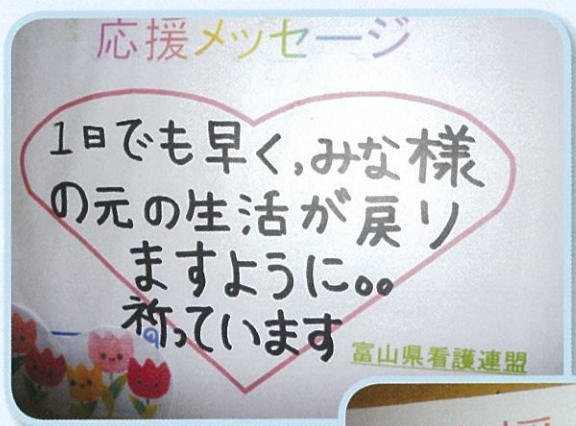 応援メッセージ
1日でも早く、みな様
の元の生活が戻り
ますように。。
祈っています
富山県看護連盟
援